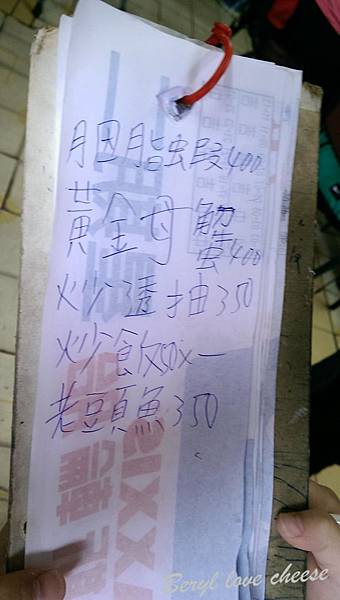 胭脂蝦400
黃金母蟹400
炒透抽350
炒飯50x一
老豆頭魚350
Beryl love cheese